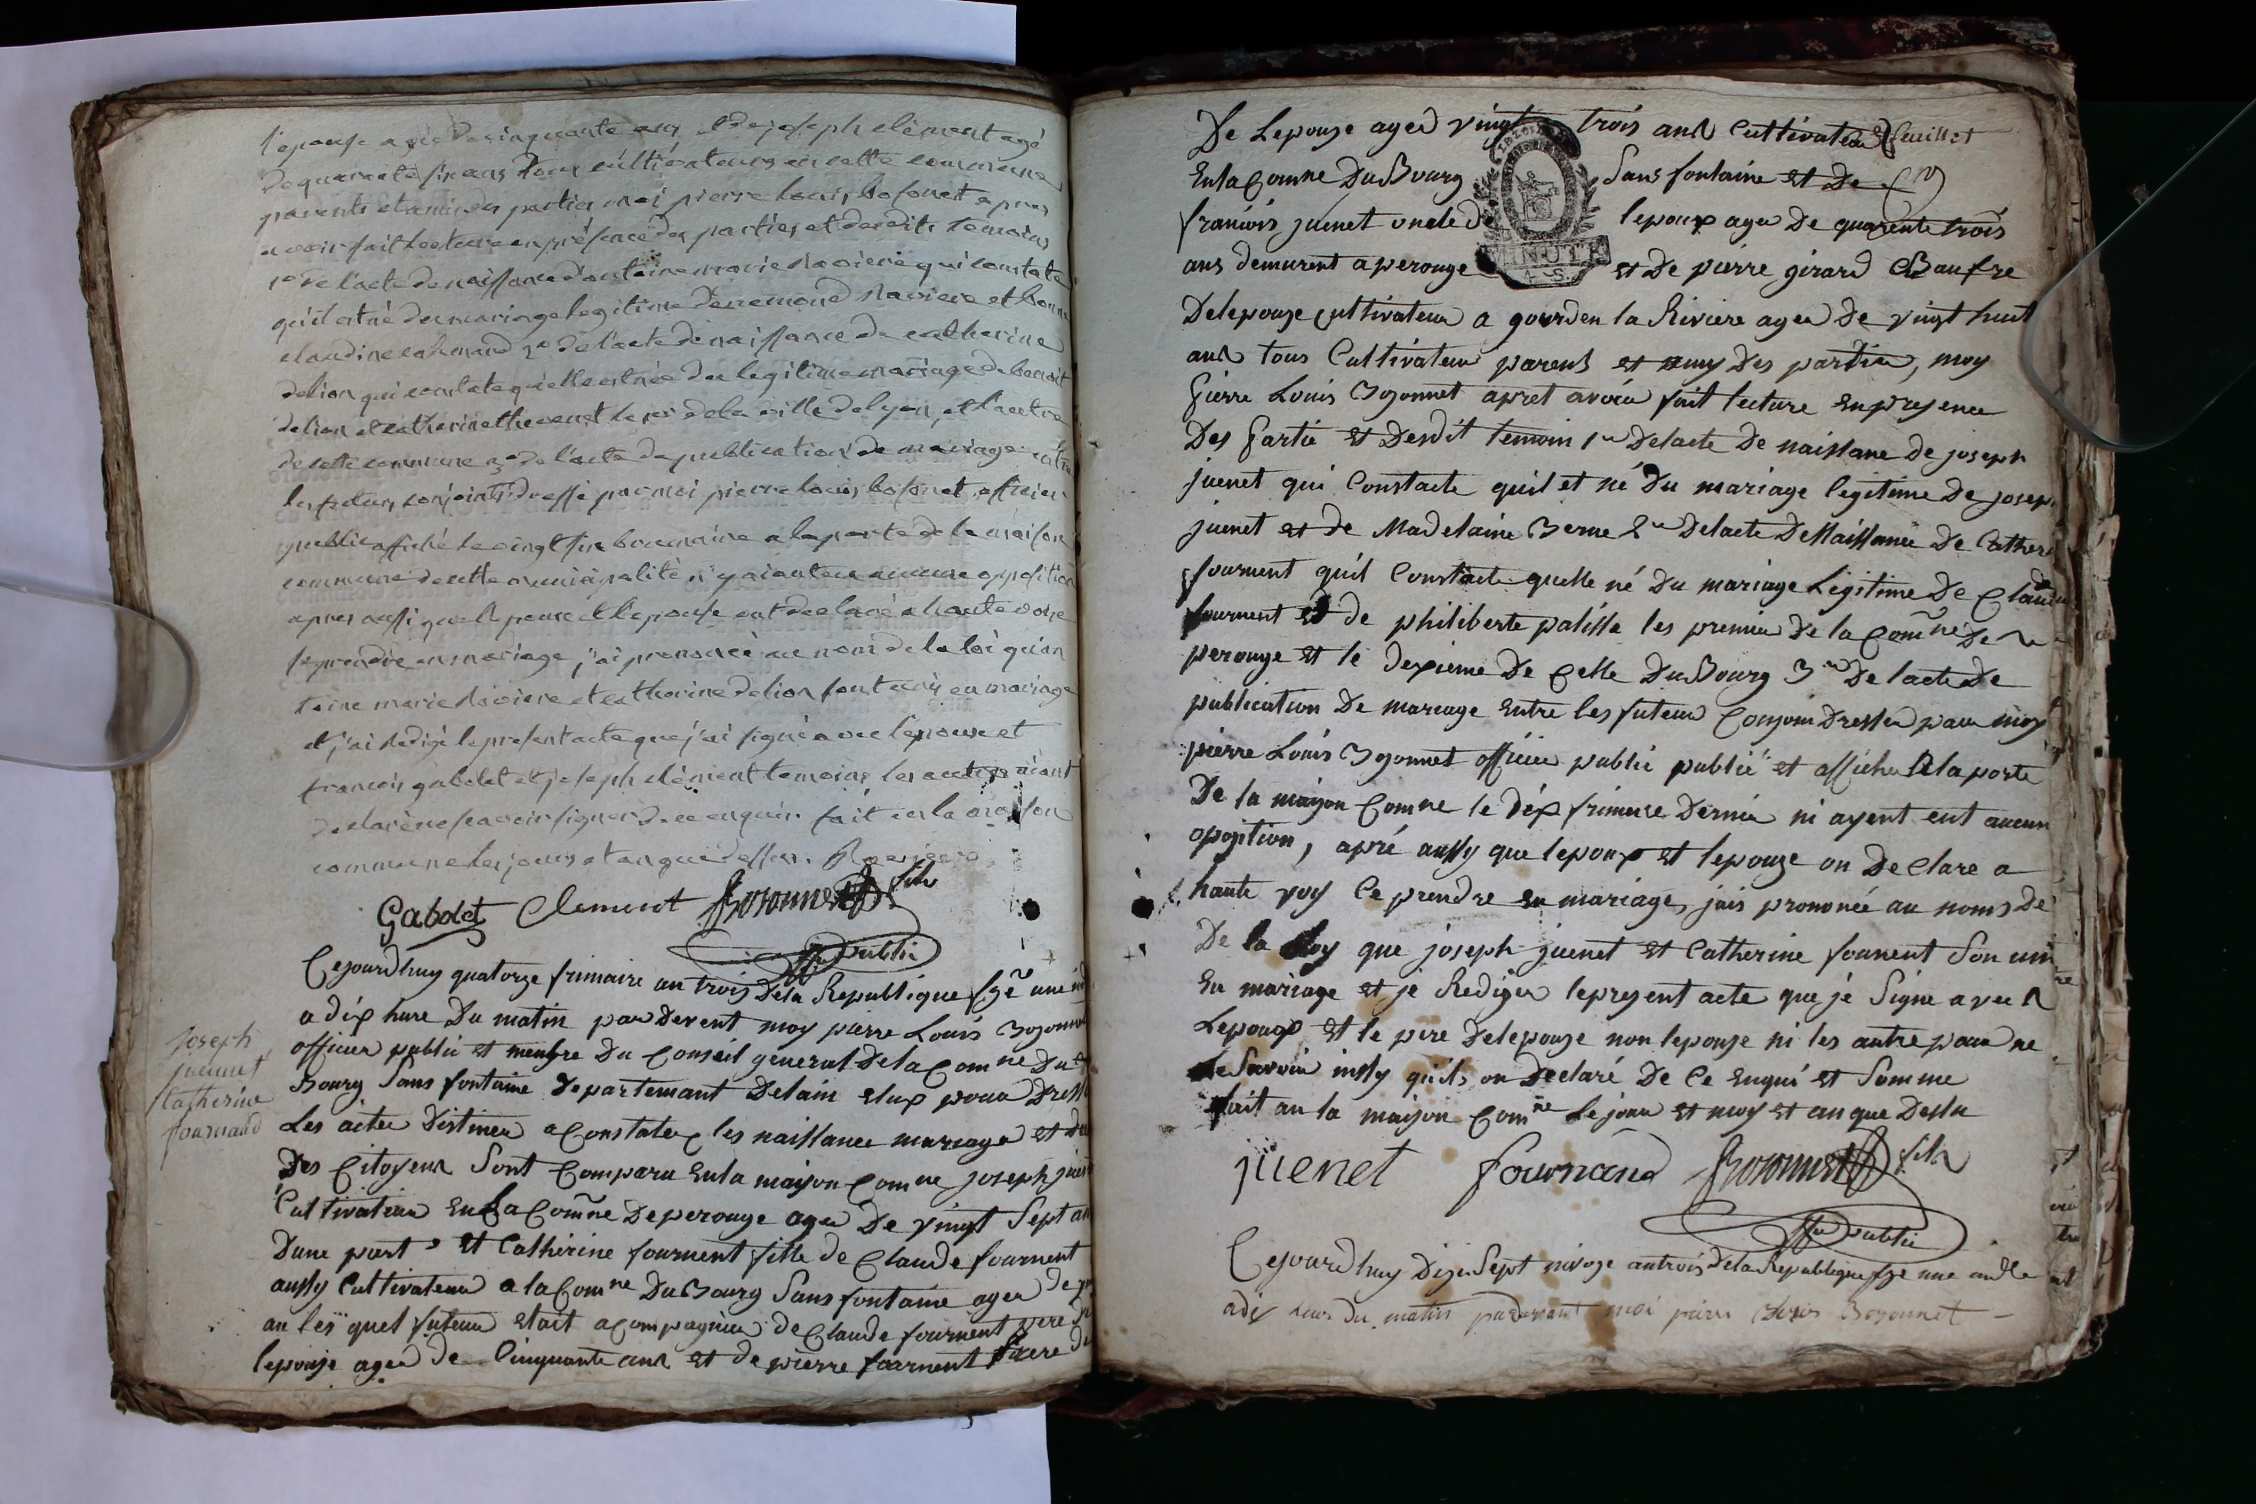 l'epouse agée de cinquante ans, et de joseph clément agé
de quarante six ans tous cultivateurs en cette commune
parents et amis des parties moi pierre louis bosonet apres
avoir fait lecture en présence des parties et desdits temoins
1º de l'acte de naissance d'antoine marie raviere qui constate
qu'il est né du mariage legitime de remond raviere et
claudine 2º de l'acte de naissance de catherine
delion qui constate qu'elle est née du legitime mariage de benoit
delion et catherine thevenet de la ville de lyon, et l'autre
de cette commune 3º de l'acte de publication de mariage entre
les futurs conjoints dressé par moi pierre louis bosonet officier
public affiché le vingt six brumaire a la porte de la maison
commune de cette municipalité, n'y aiant eu aucune opposition
apres aussi que l'epoux et l'epouse ont declaré a haute voix
se prendre en mariage, j'ai prononcé au nom de la loi qu'an
toine marie raviere et catherine delion sont unis en mariage
et j'ai redigé le present acte que j'ai signé avec l'epoux et
francois gabolet et joseph clément temoins les autres aiant
declaré ne scavoir signer de ce enquis. fait en la maison
commune les jours et an que dessus.
Gabolet Clement Bozonnet fils
off publi
joseph
juennet
Catherine
fournand
Cejourdhuy quatorze frimaire an trois dela Republique fse une ind
a dix hure Du matin par Devent moy pierre Louis Bozonnet
officier public et menbre Du Conseil general Dela Comne Du
Bourg Sans fontaine Departemant Delain elux pour Dresse
Les actes Distinea a Constatex les naissance mariage et de
Des Citoyens Sont Comparu Enla maison Comne joseph juenet
Cultivateur En La Comne De perouge agee De vingt Sept an
Dune part, Et Catherine fournent fille de Claude fournent
aussy Cultivateur a la Comne Du Bourg Sans fontaine agee De
an les quel futeur etait acompagnier de Claude fournent pere
lepouse agee de Cinquante ans et de pierre fournent frere de
De Lepouze agee vingt trois ans Cultivateur feuillet
Enla Comne Du Bourg Sans fontaine et De
francois juenet oncle de lepoux agee De quarente trois
ans demurent a perouge et De pierre girard Baufre
Delepouze Cultivateur a gourden la Riviere agee de vingt huit
ans tous Cultivateur parens et amy Des partie, moy
Pierre Louis Bozonnet apret avoir fait lecture En presence
Des Partie Et Desdit temoin 1er Delacte De naissane de joseph
juenet qui Constacte quil et né Du mariage legitime De josep
juenet et de Madelaine Berne 2e Delacte De Naissance De Cather
fournent quil Constacte quelle né Du mariage Legitime De Claude
fournent et de philiberte palisse les premier De la Comne De
perouge et le Dexieme De Celle Du Bourg 3me De lacte De
publication De mariage Entre les futeur Conjoin Dresser par moy
pierre Louis Bozonnet officier public publié et afficher a la porte
De la maison Comne le Dix frimere Dernier ni ayent eut aucun
oposition, apré aussy que lepoux et lepouze on Declare a
haute voy Ce prendre en mariage, jais prononcé au noms De
De la Loy que joseph juenet et Catherine fournent Son uni
En mariage et je Rediger lepresent acte que je Signe avec
Lepoux et le pere Delepouze non lepouze ni les autre pour ne
le Savoir insy quils on Declaré De Ce Enqui et Somme
fait an la maison Comne Le jour et moy et an que Desu
juenet fournand Bozonnet fils
off publi
Cejourdhuy Dize Sept nivoze an trois dela Republique fse une indle
a dix heurs du matin pardevant moi pierre louis Bozonnet